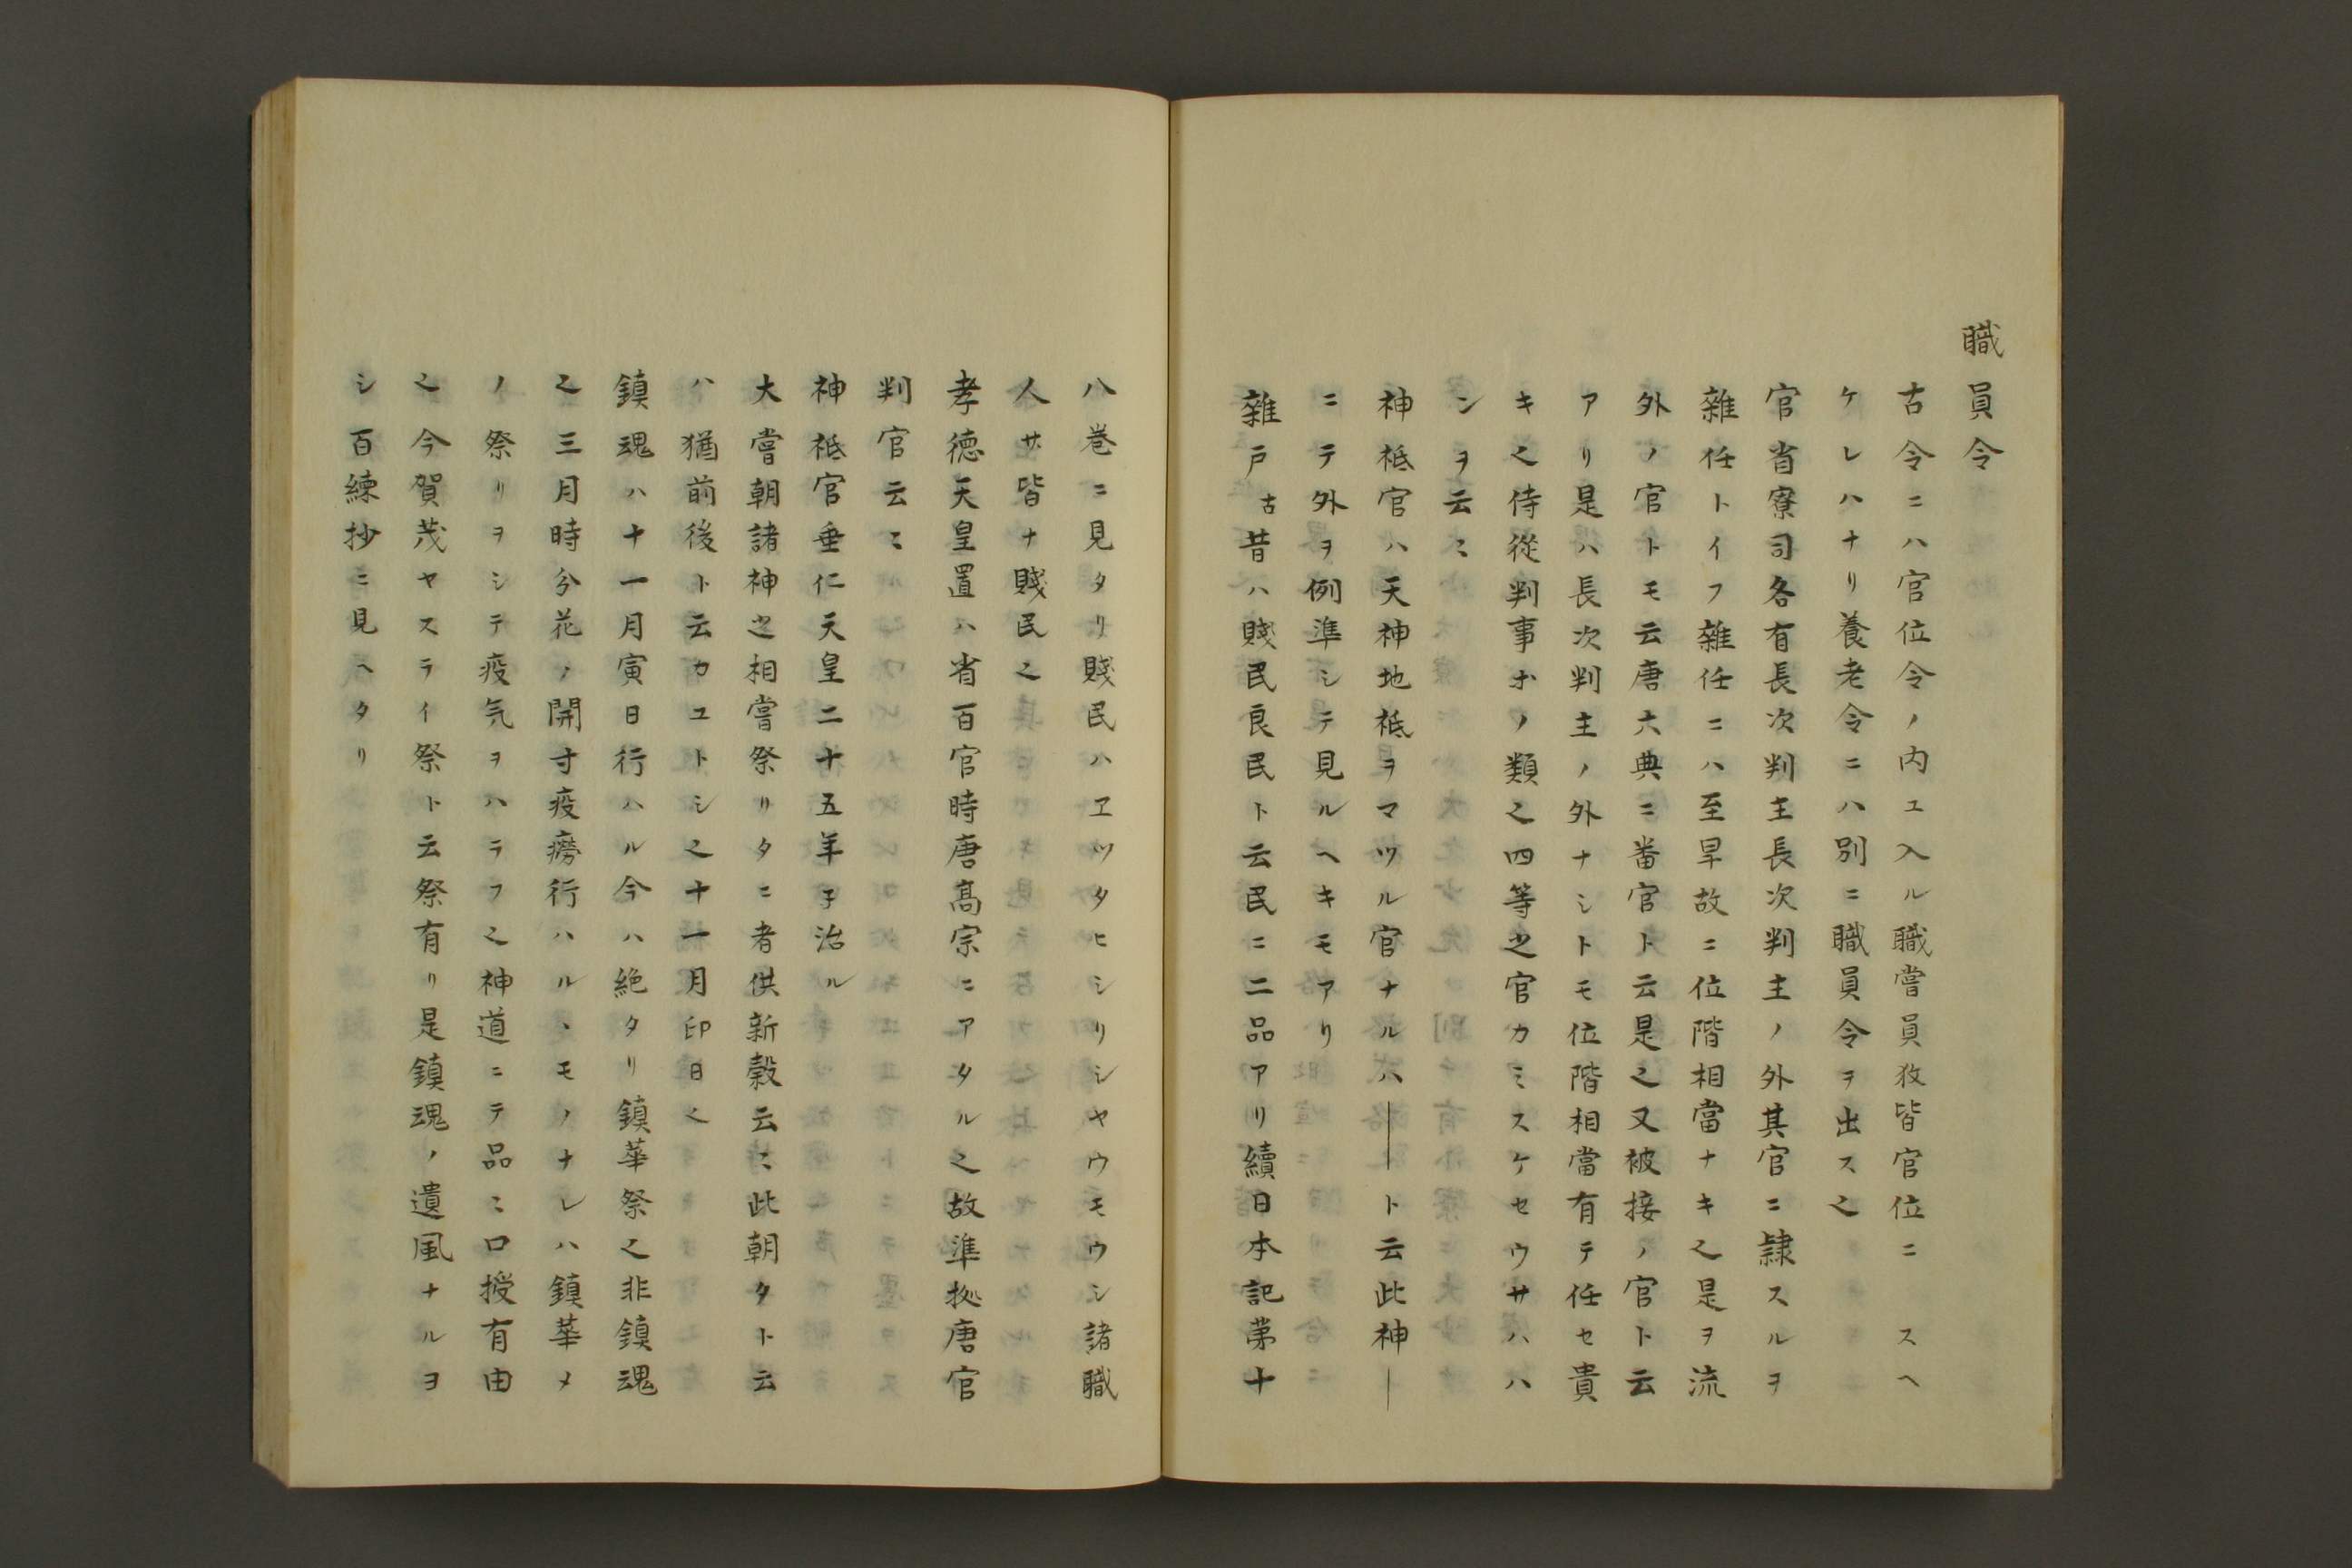 職員令
古令ニハ官位令ノ内ユ入ル職嘗員攷皆官位ニ スヘ
ケレハナリ養老令ニハ別ニ職員令ヲ出ス之
官省寮司各有長次判主長次判主ノ外其官ニ隷スルヲ
雜任トイフ雜任ニハ至旱故ニ位階相當ナキ之是ヲ流
外ノ官トモ云唐六典ニ番官ト云是之又被接ノ官ト云
アリ是ハ長次判主ノ外ナシトモ位階相當有テ任セ貴
キ之侍従判事ホノ類之四等之官カミスケセウサハハ
ンヲ云〻
神祗官ハ天神地祗ヲマツル官ナルハ――ト云此神―
ニテ外ヲ例準シテ見ルヘキモアリ
雜戸古昔ハ賤民良民ト云民ニ二品アリ續日本記苐十
八巻ニ見タリ賤民ハヱツタヒシリシヤウモウシ諸職
人サ皆ナ賤民之
孝徳天皇置八省百官時唐髙宗ニアタル之故準拠唐官
判官云〻
神祗官垂仁天皇二十五年子治ル
大嘗朝諸神之相嘗祭リタニ者供新穀云〻此朝タト云
ハ猶前後ト云カユトシ之十一月印日之
鎮魂ハ十一月寅日行ハル今ハ絶タリ鎮華祭之非鎮魂
之三月時分花ノ開寸疫癆行ハルヽモノナレハ鎮華メ
ノ祭リヲシテ疫気ヲハラフ之神道ニテ品〻口授有由
之今賀茂ヤスライ祭ト云祭有リ是鎮魂ノ遺風ナルヨ
シ百練抄ニ見ヘタリ